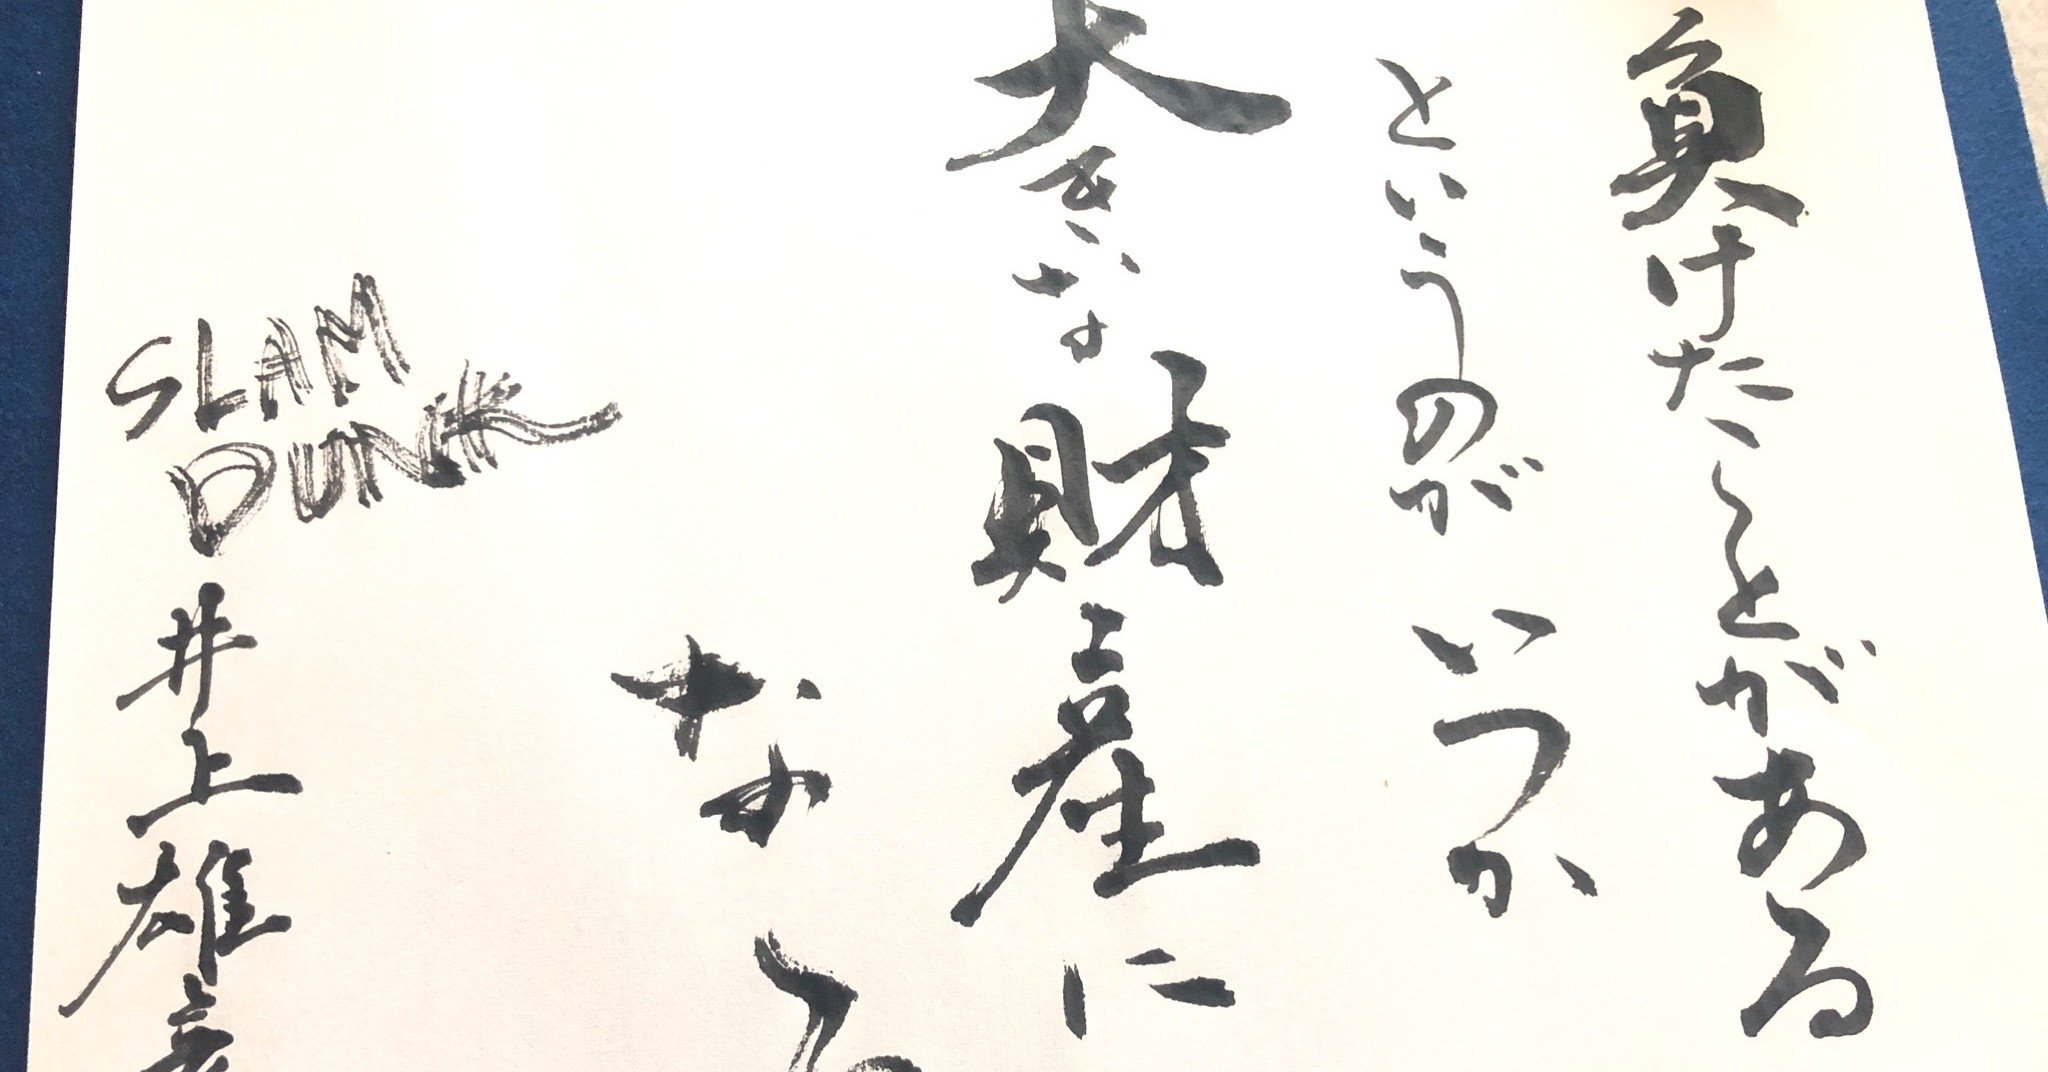 負けたことがある
というのが いつか
大きな財産に
なる
SLAM
DUNK
井上雄彦